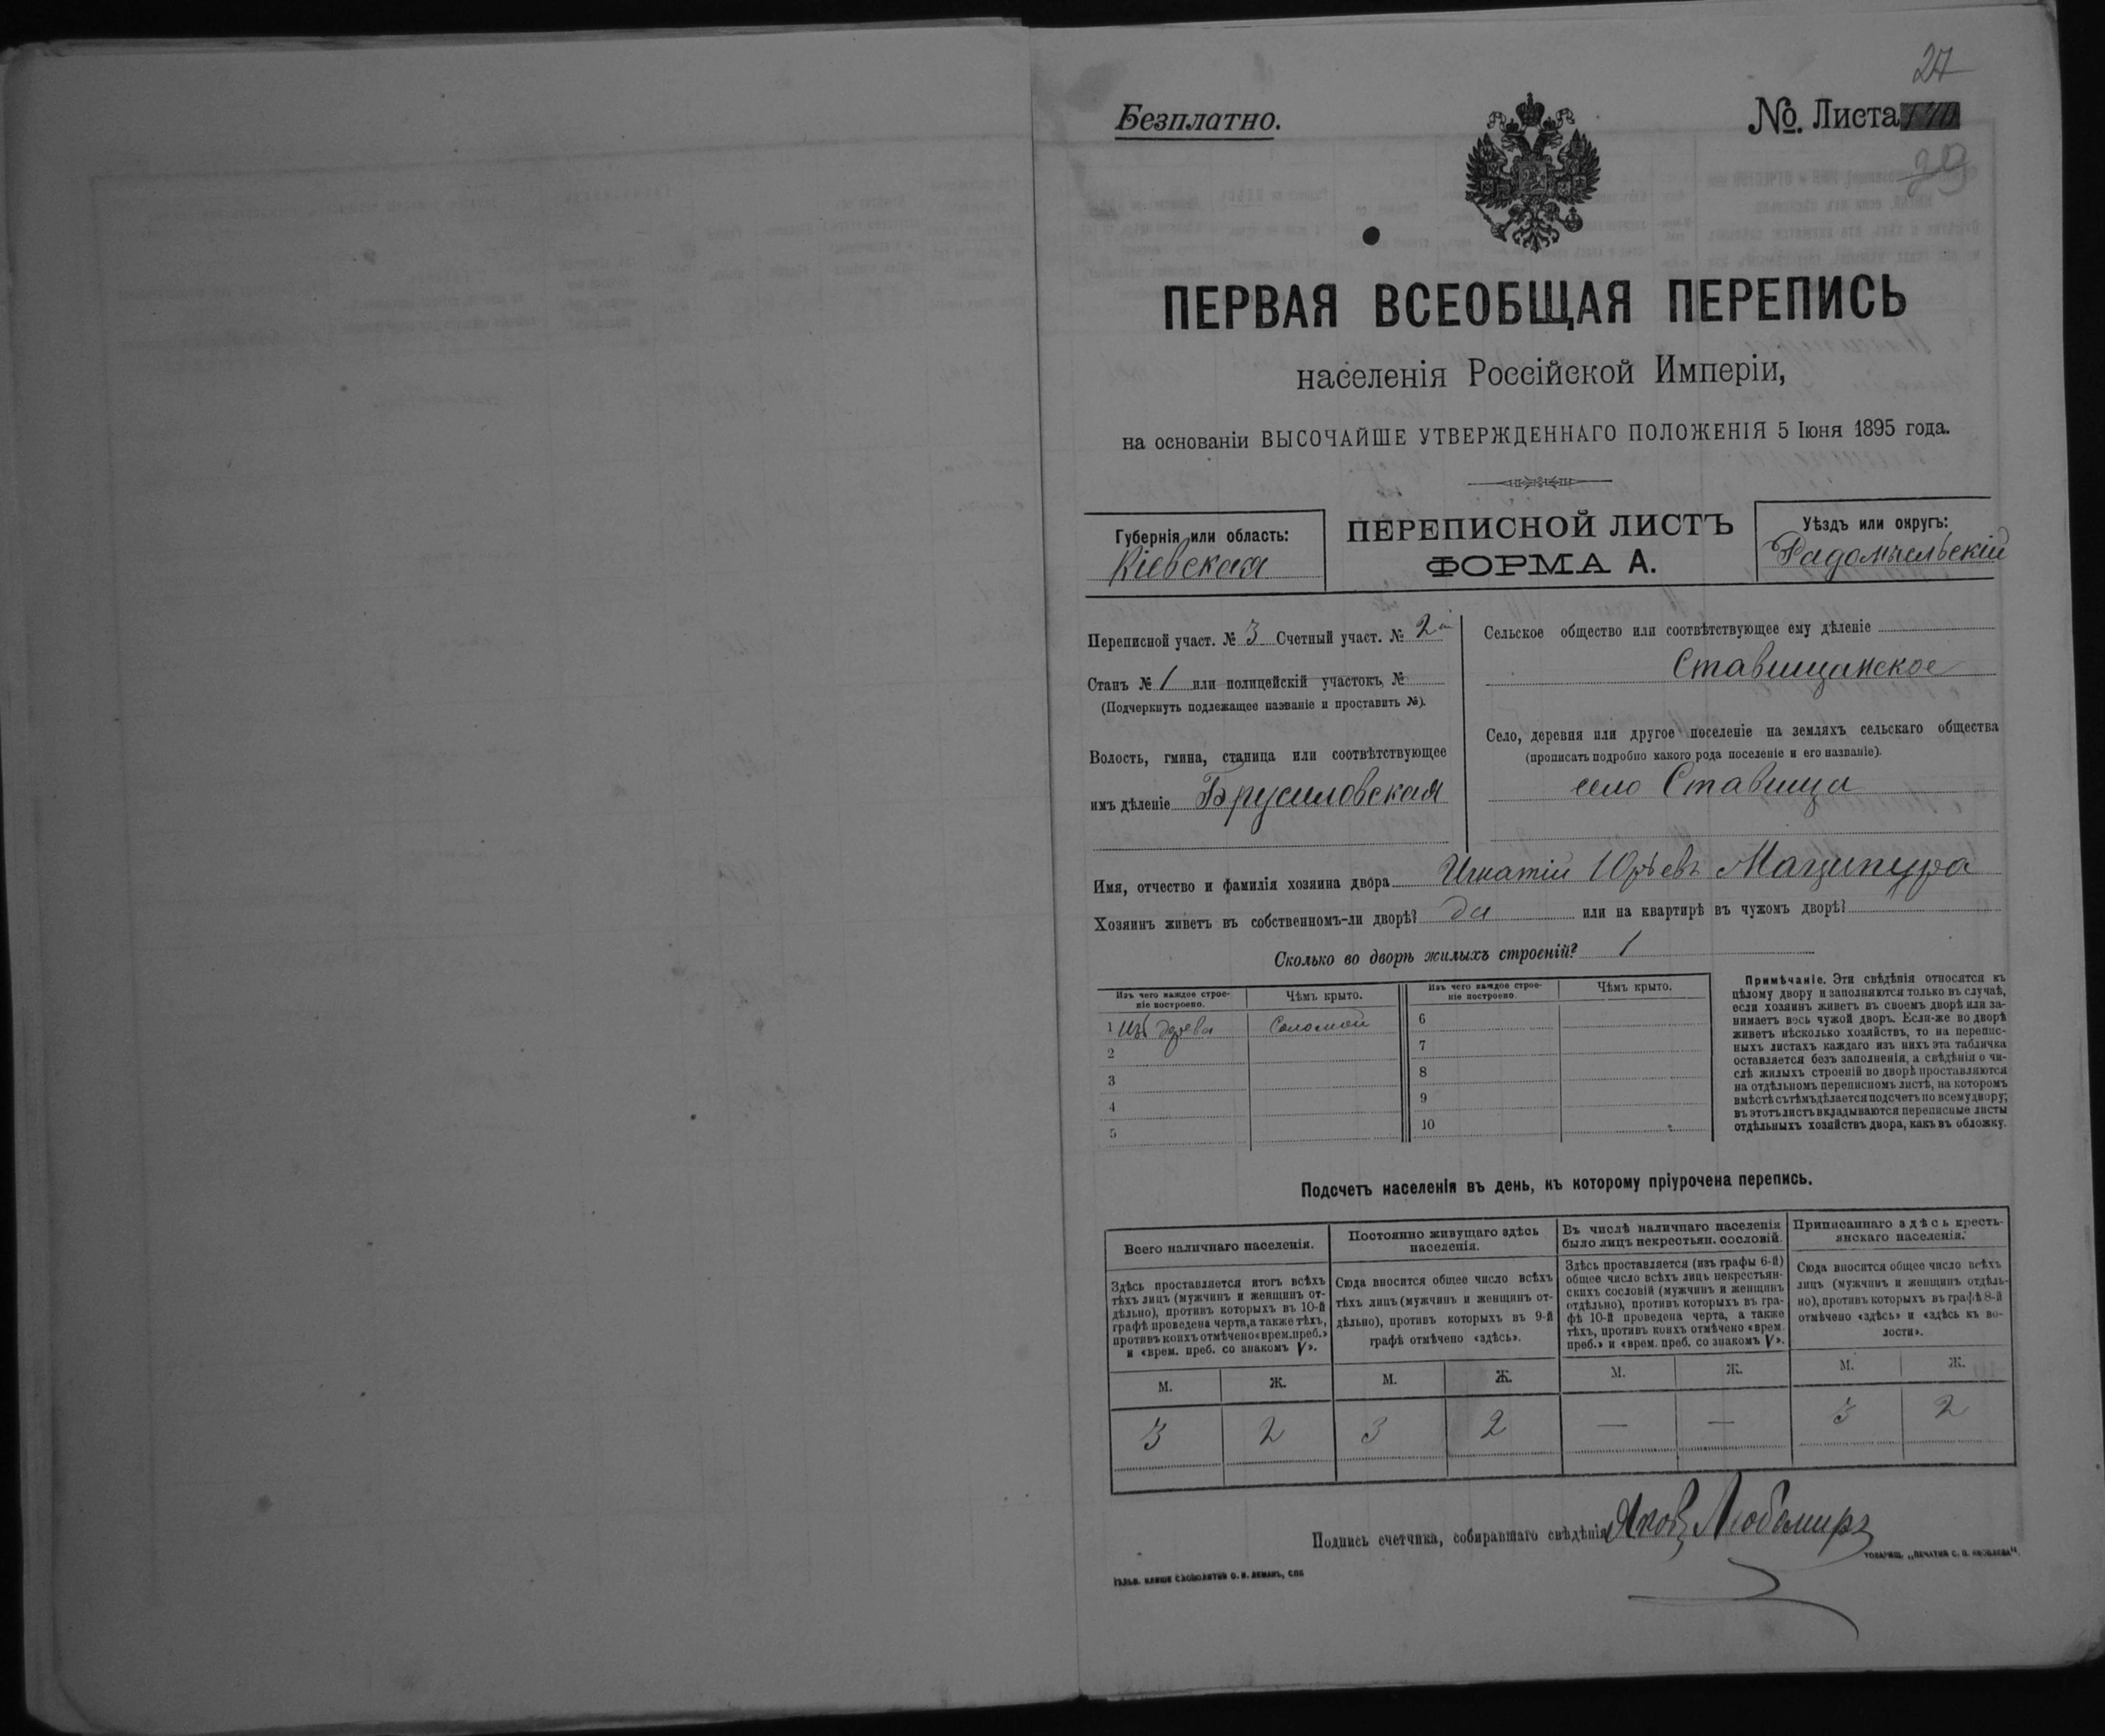 27
Безплатно.
№. Листа
29
ПЕРВАЯ ВСЕОБЩАЯ ПЕРЕПИСЬ
населенія Россійской Имперіи,
на основаніи ВЫСОЧАЙШЕ УТВЕРЖДЕННАГО ПОЛОЖЕНІЯ 5 Іюня 1895 года.
Губернія или область:
Кіевская
ПЕРЕПИСНОЙ ЛИСТЪ
ФОРМА А.
Уѣздъ или округъ:
Радомысльскій
Переписной участ. № 3 Счетный участ. № 2й
Станъ № 1 или полицейскій участокъ №
(Подчеркнуть подлежащее названіе и проставить №).
Волость, гмина, станица или соотвѣтствующее
имъ дѣленіе Брусиловская
Сельское общество или соотвѣтствующее ему дѣленіе
Ставищанское
Село, деревня или другое поселеніе на земляхъ сельскаго общества
(прописать подробно какого рода поселеніе и его названіе).
село Ставища
Имя, отчество и фамилія хозяина двора Игнатій Юрьевъ Маципура
Хозяинъ живетъ въ собственномъ-ли дворѣ? да или на квартирѣ въ чужомъ дворѣ?
Сколько во дворѣ жилыхъ строеній? 1
Изъ чего каждое строе-
ніе построено.
Чѣмъ крыто.
1 Изъ дерева Соломой
2
3
4
5
Изъ чего каждое строе-
ніе построено.
Чѣмъ крыто.
6
7
8
9
10
Примѣчаніе. Эти свѣдѣнія относятся къ
цѣлому двору и заполняются только въ случаѣ,
если хозяинъ живетъ въ своемъ дворѣ или за-
нимаетъ весь чужой дворъ. Если-же во дворѣ
живетъ нѣсколько хозяйствъ, то на перепис-
ныхъ листахъ каждаго изъ нихъ эта табличка
оставляется безъ заполненія, а свѣдѣнія о чи-
слѣ жилыхъ строеній во дворѣ проставляются
на отдѣльномъ переписномъ листѣ, на которомъ
вмѣстѣ съ тѣмъ дѣлается подсчетъ по всему двору;
въ этотъ листъ вкладываются переписные листы
отдѣльныхъ хозяйствъ двора, какъ въ обложку.
Подсчетъ населенія въ день, къ которому пріурочена перепись.
Всего наличнаго населенія.
Здѣсь проставляется итогъ всѣхъ
тѣхъ лицъ (мужчинъ и женщинъ от-
дѣльно), противъ которыхъ въ 10-й
графѣ проведена черта, а также тѣхъ,
противъ коихъ отмѣчено «врем. преб.»
и «врем. преб. со знакомъ V».
Постоянно живущаго здѣсь
населенія.
Сюда вносится общее число всѣхъ
тѣхъ лицъ (мужчинъ и женщинъ от-
дѣльно), противъ которыхъ въ 9-й
графѣ отмѣчено «здѣсь».
Въ числѣ наличнаго населенія
было лицъ некрестьян. сословій.
Здѣсь проставляется (изъ графы 6-й)
общее число всѣхъ лицъ некрестьян-
скихъ сословій (мужчинъ и женщинъ
отдѣльно), противъ которыхъ въ гра-
фѣ 10-й проведена черта, а также
тѣхъ, противъ коихъ отмѣчено «врем.
преб.» и «врем. преб. со знакомъ V».
Приписаннаго здѣсь кресть-
янскаго населенія.
Сюда вносится общее число всѣхъ
лицъ (мужчинъ и женщинъ отдѣль-
но), противъ которыхъ въ графѣ 8-й
отмѣчено «здѣсь» и «здѣсь къ во-
лости».
М. Ж. М. Ж. М. Ж. М. Ж.
3 2 3 2 — — 3 2
Подпись счетчика, собиравшаго свѣдѣнія Яковъ Любомиръ
ГАЛЬВ. КЛИШЕ СЛОВОЛИТНИ О. И. ЛЕМАНЪ, СПБ
ТОВАРИЩ. „ПЕЧАТНЯ С. П. ЯКОВЛЕВА".